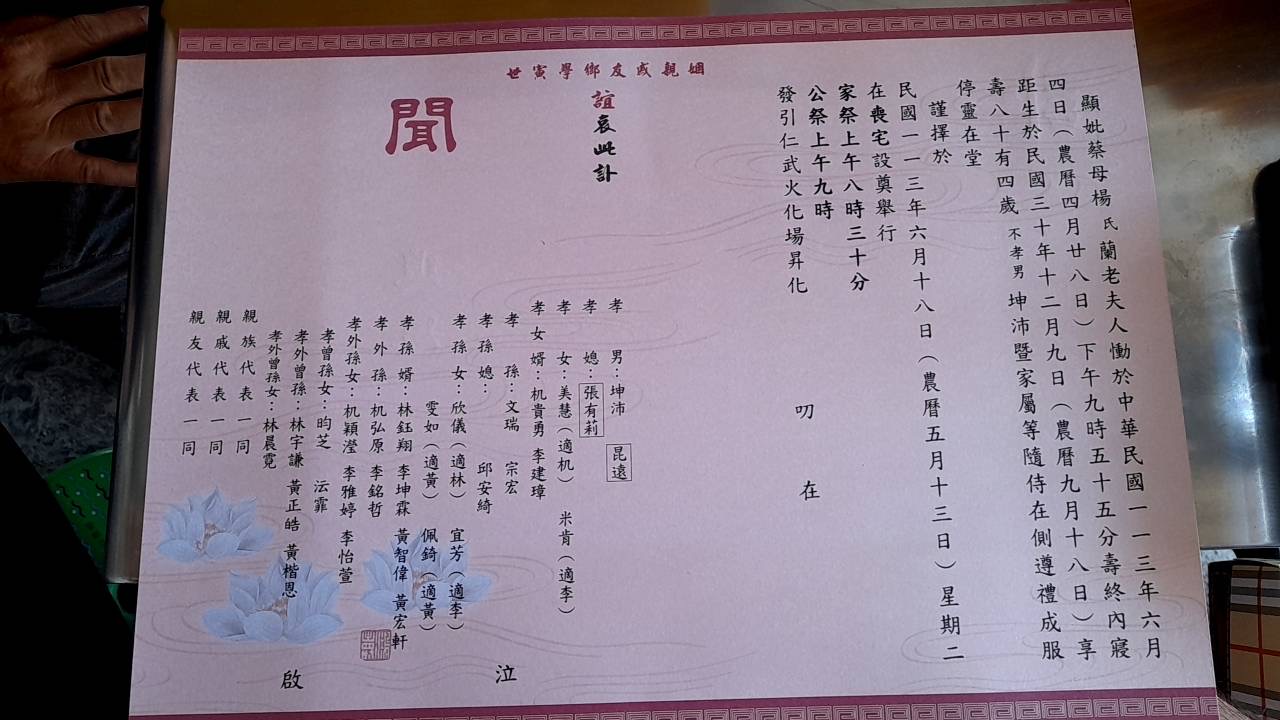 顯妣蔡母楊氏蘭老夫人慟於中華民國一一三年六月
四日（農曆四月廿八日）下午九時五十五分壽終內寢
距生於民國三十年十二月九日（農曆九月十八日）享
壽八十有四歲不孝男坤沛暨家屬等隨侍在側遵禮成服
停靈在堂
謹擇於
民國一一三年六月十八日（農曆五月十三日）星期二
在喪宅設奠舉行
家祭上午八時三十分
公祭上午九時
發引仁武火化場昇化
叨在
姻親戚友鄉學寅世
誼哀此訃
聞
孝男：坤沛 昆遠
孝媳：張有莉
孝女：美慧（適机） 米肯（適李）
孝女婿：机貴勇 李建璋
孝孫：文瑞 宗宏
孝孫媳： 邱安綺
孝孫女：欣儀（適林） 宜芳（適李）
雯如（適黃） 佩錡（適黃）
孝孫婿：林鈺翔 李坤霖 黃智偉 黃宏軒
孝外孫：机弘原 李銘哲
孝外孫女：机穎瀅 李雅婷 李怡萱
孝曾孫女：昀芝 沄霏
孝外曾孫：林宇謙 黃正皓 黃楷恩
孝外曾孫女：林晨霓
親族代表一同
親戚代表一同
親友代表一同
泣
啟